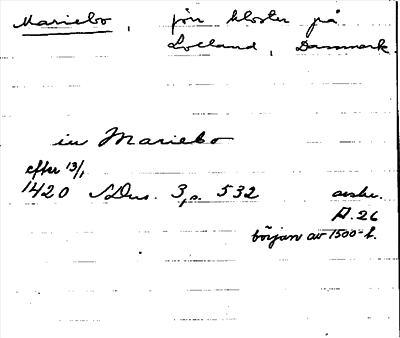 Mariebo, förr kloster på
Lolland, Danmark.
in Mariebo
efter 13/1
1420 SDns. 3, s. 532 avskr.
A.26
början av 1500-t.